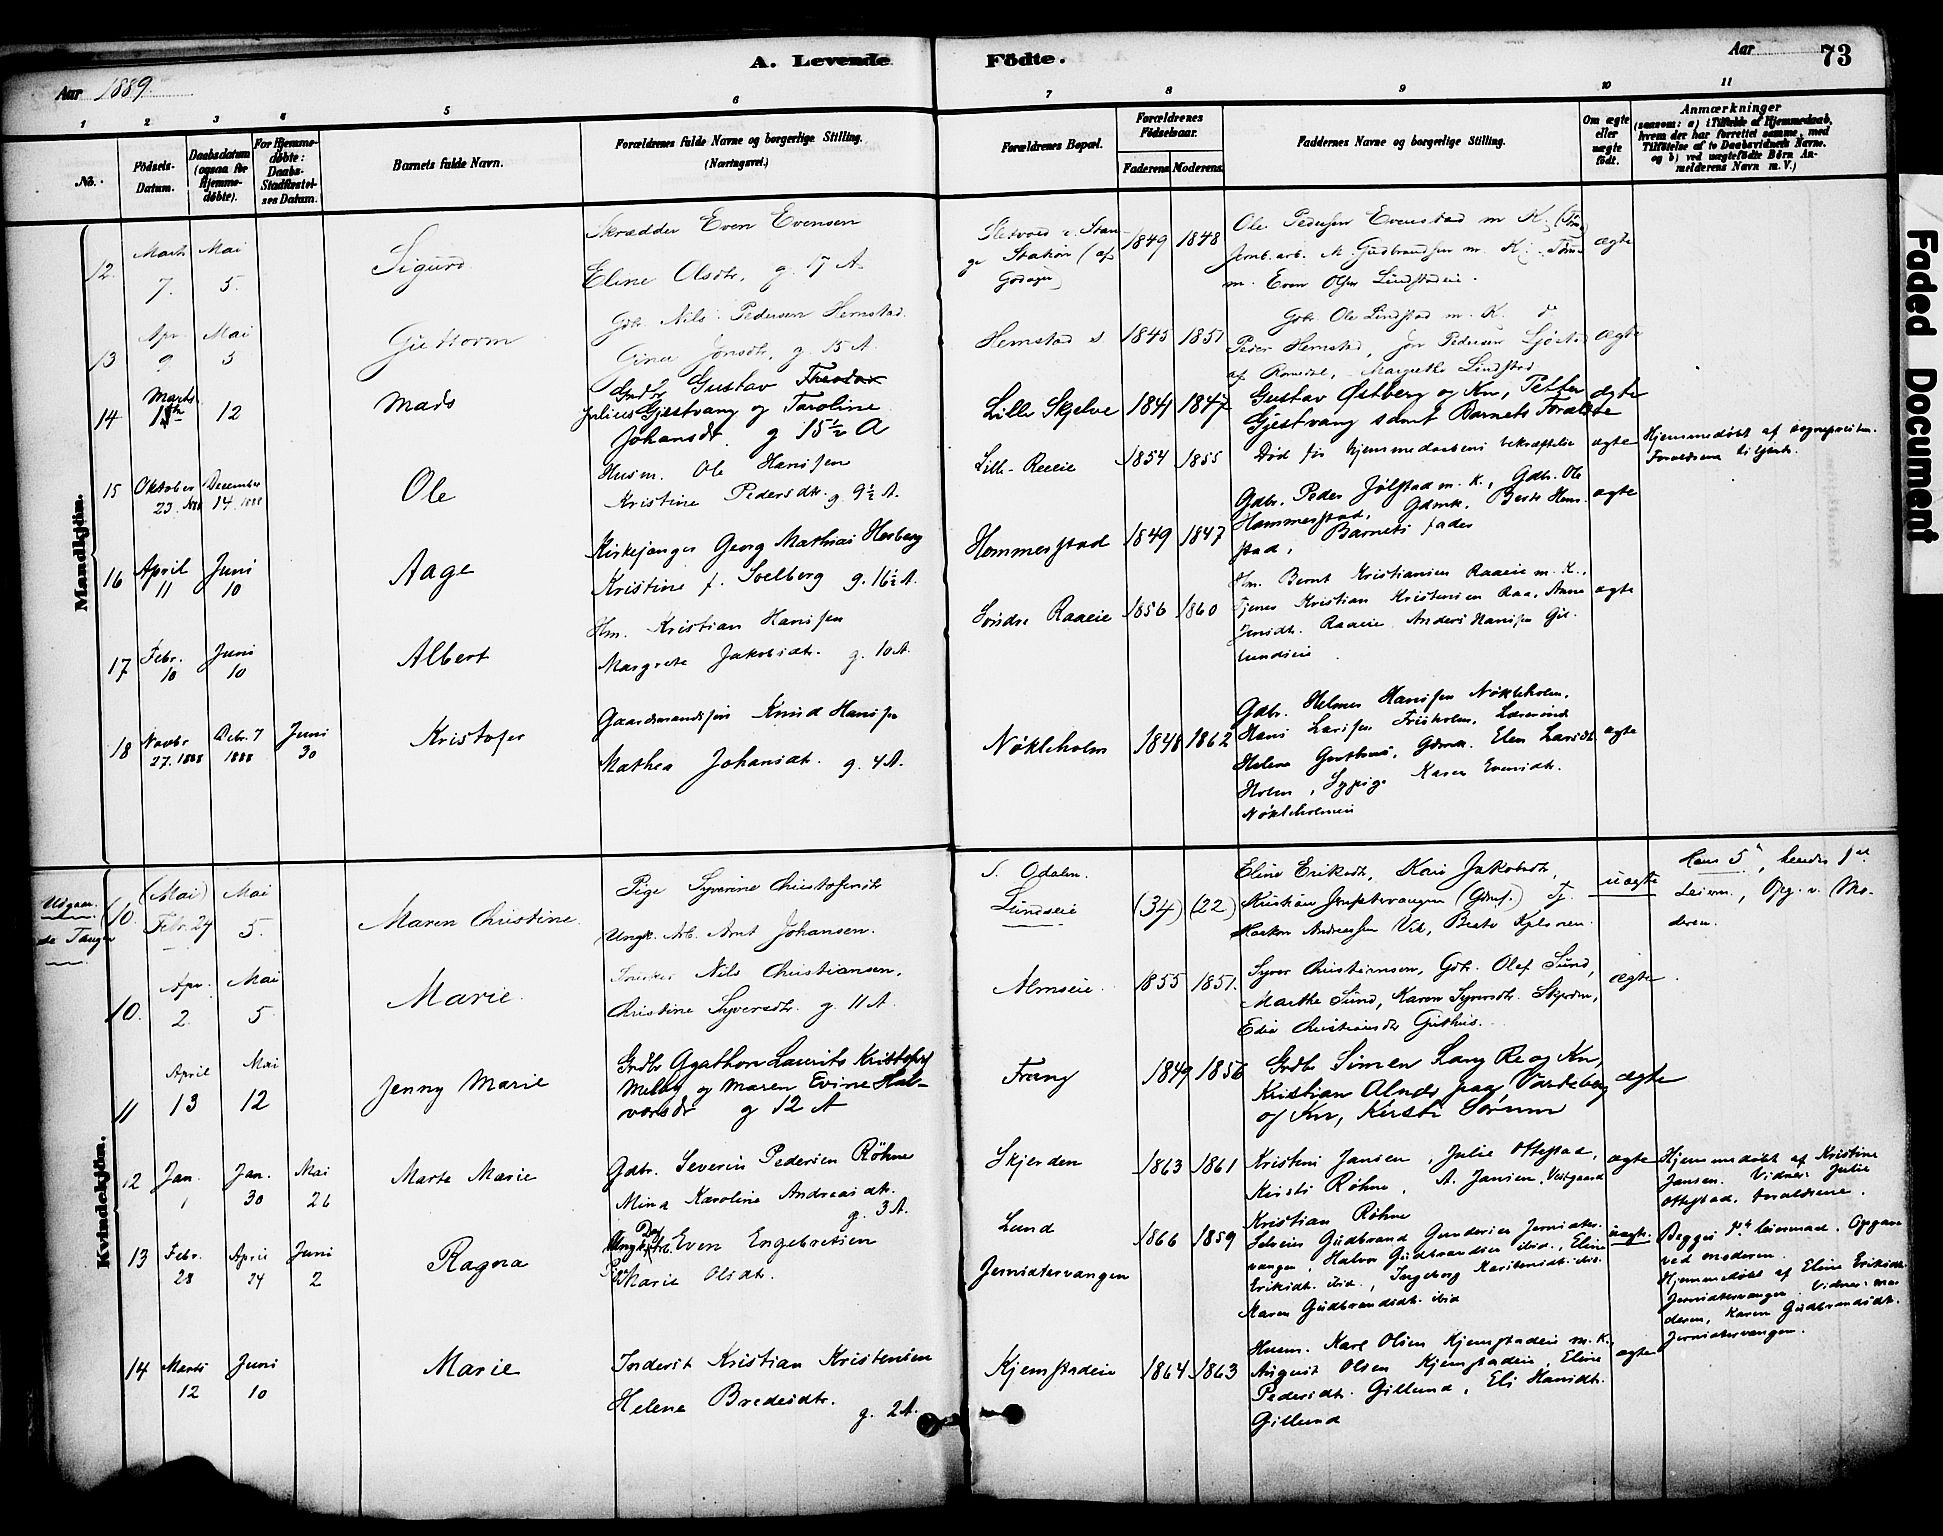 Aar 1889.
A. Levende Födte.
Aar
73
1 2 3 4 5 6 7 8 9 10 11
No.
Födsels-Datum.
Daabsdatum (ogsaa for Hjemmedöbte).
For Hjemmedöbte: Daabs-Stadfæstelses Datum.
Barnets fulde Navn.
Forældrenes fulde Navne og borgerlige Stilling. (Næringsvei.)
Forældrenes Bopæl.
Forældrenes Födselsaar.
Faderens Moderens
Faddernes Navne og borgerlige Stilling.
Om ægte eller uægte födt.
Anmærkninger
(saasom: a) i Tilfælde af Hjemmedaab, hvem der har forrettet samme, med Tilföielse af to Daabsvidners Navne. og b) ved uægtefödte Börn Anmelderens Navn m. V.)
Mandkjön.
12. Marts 7. Mai 5. Sigurd
Skrædder Even Evensen
Eline Olsdtr. g. 17 A.
Station
1849 1848
Ole Pedersen Evenstad m. K.
m. Even Olsen Lindstadeie.
ægte
13 Apr. 9 Mai 5 Guttorm
Gdb. Nils Pedersen Hemstad.
Jonsdtr, g. 15 A.
Hemstad
1845 1851
Gdb. Ole Lindstad m. K.
Peder Hemstad, Jon Pedersen
af Romedal, Margrethe Lindstad
ægte
14 Marts 12 Mads
Gustav Theodor
Julius Gjestvang og Karoline
Johansdr. g 15½ A
Lille Skjelve 1841 1847
Gustav Østberg og Kn, Petter
Gjestvang samt Barnets Forældre
ægte
15 Oktober 23. 1888 December 14 1888 Ole
Husm. Ole Hanssen
Kristine Pedersdtr. g. 9½ A.
1854 1855
Død før hjemmedaabens bekræftelse
ægte
Hjemmedøbt af sognepresten.
Forældrene tilstede.
16 April 11 Juni 10 Aage
Kirkesanger Georg Mathias Hesberg
Kristine f. Soelberg g. 16½ A.
Hommerstad 1849 1847
Gdbr. Peder Jølstad m. K., Gdbr. Ole
Hommerstad, Gdmk. Berte Hem-
stad, Barnets fader
ægte
17 Febr. 10 Juni 10 Albert
Hm. Kristian Hanssen
Margrete Jakobsdtr. g. 10 A.
Søndre Raaeie 1856 1860
Hm. Bernt Kristiansen Raaeie m. K.,
Tjener Kristian Kristensen Raa, Anne
Jensdtr. Raaeie, Anders Hanssen Gil-
lundseie
ægte
18 Novbr. 27. 1888 Debr. 7 1888 Juni 30 Kristofer
Gaardmandssøn Knud Hanssen
Mathea Johansdtr. g. 4 A.
Nøkleholm 1848 1862
Gdbr. Helmer Hanssen Nøkleholm,
Hans Larssen Frisholm, Lærerinde
Helene Guthus, Gdmk. Elen Larsdtr.
Holm, Sypige Karen Evensdtr.
Nøkleholmeie
ægte
Kvindekjön.
10. (Mai) Febr. 24 Mai 5. Maren Christine.
Pige Syverine Christofersdtr
Ungk. Arb. Arnt Johansen.
S. Odalen.
Lundseie (34) (22)
Eline Eriksdtr, Kari Jakobsdtr,
uægte
Hans 5te, hendes 1ste
Leierm., Opg. v. Mo-
deren.
10. Apr. 2. Mai 5 Marie.
Nils Christiansen,
Christine Syversdtr. g. 11 A.
Almseie. 1855 1851.
Syver Christiansen, Gdb. Olef Sund,
Marthe Sund, Karen Syversdtr. Skjerden,
Edie Christiansdtr Guthus.
ægte
11 April 13 Mai 12 Jenny Marie
Grdbr Agathon Laurits Kristofer
Melby og Maren Evine Hal-
vorsdr g 12 A
Frang 1849 1856
Grdb Simen Lang Re og Kn,
Kristian Alnds paa Vardeberg
og Kn, Kirsti Sørum
ægte
12 Jan. 1 Jan. 30 Mai 26 Marte Marie
Gdbr. Severin Pedersen Röhne
Mina Karoline Andreasdtr.
g. 3 A.
Skjerden 1863 1861
Kristine Jansen, Julie Ottestad,
Kirsti Röhne, A. Jansen, Vestgaard
Kristian Röhne
ægte
Hjemmedøbt af Kristine
Jansen. Vidner Julie
Ottestad, forældrene.
13 Febr. 28 April 24 Juni 2 Ragna
Ungk. Even Engebretsen
Marie Olsdtr.
Lund
Jernsætervangen
1866 1859
Gudbrand Gundersen Jernsæter-
vangen, Halvor Gudbrandsen ibid., Eline
Eriksdtr. ibid., Ingeborg Karstensdtr. ibid.
Karen Gudbrandsdtr. ibid
uægte.
Begges 1ste leiermaal. Opgave
ved moderen.
Hjemmedøbt af Eline Eriksdtr.
Jernsætervangen. Vidner: mo-
deren, Karen Gudbrandsdtr.
Jernsætervangen.
14 Marts 12 Juni 10 Marie
Inderst Kristian Kristensen
Helene Bredesdtr. g. 2 A.
Kjemstadeie 1864 1863
Husm. Karl Olsen Kjemstadeie m. K.
August Olsen Kjemstadeie, Eline
Pedersdtr. Gillund, Eli Hansdtr.
Gillund
ægte
Faded Document